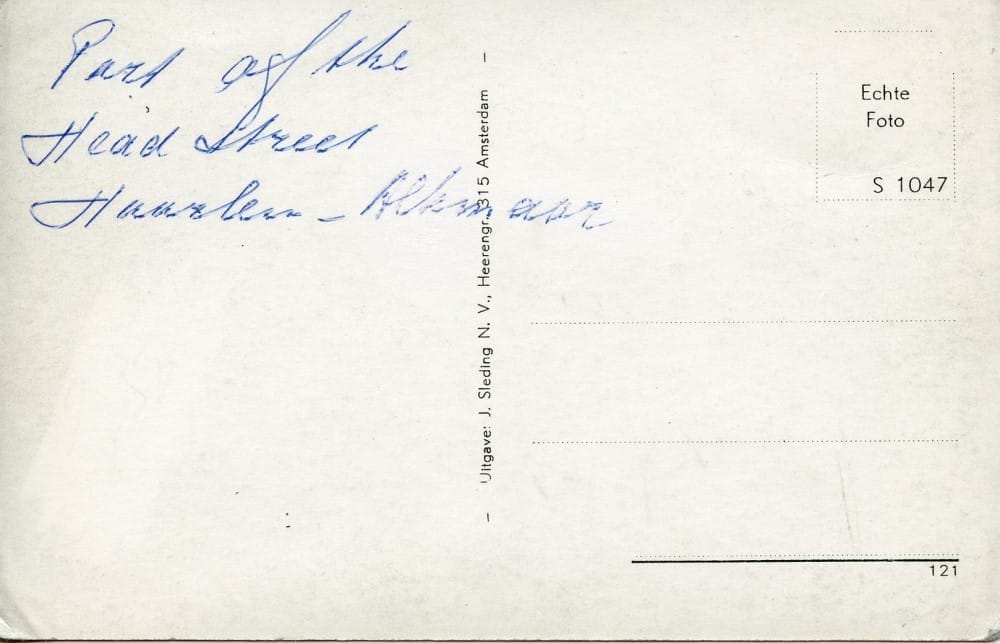 Part of the
Head Street
Haarlem - Alkmaar
Uitgave: J. Sleding N. V., Heerengr. 315 Amsterdam
Echte
Foto
S 1047
121